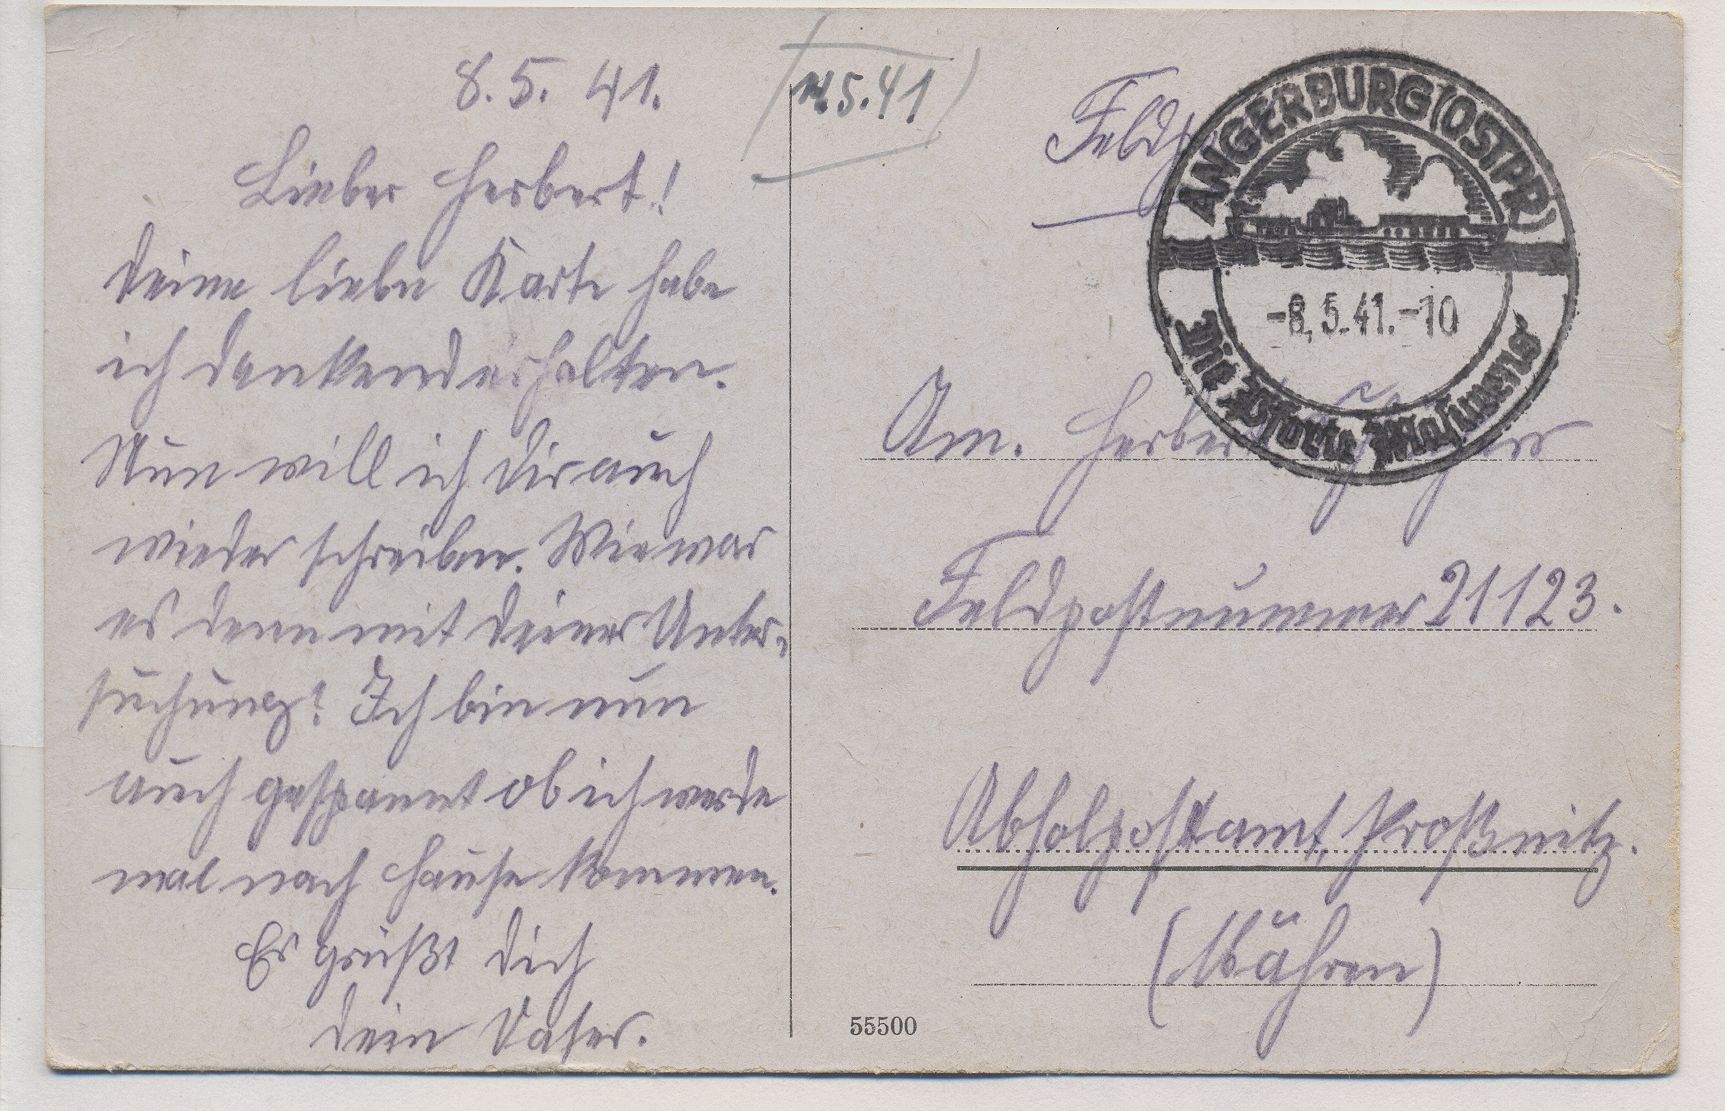 8. 5. 41.
Lieber Herbert!
Deine liebe Karte habe
ich dankend erhalten.
Nun will ich Dir auch
wieder schreiben. Wie war
es denn mit Deiner Unter-
suchung? Ich bin nun
auch gespannt ob ich werde
mal nach Hause kommen.
Es grüßt Dich
Dein Vater.
14.5.41
ANGERBURG (OSTPR)
-8.5.41.-10
Die Pforte Masurens
An. Herbert
Feldpostnummer 21123.
Abholpostamt, Proßnitz.
(Mähren)
55500